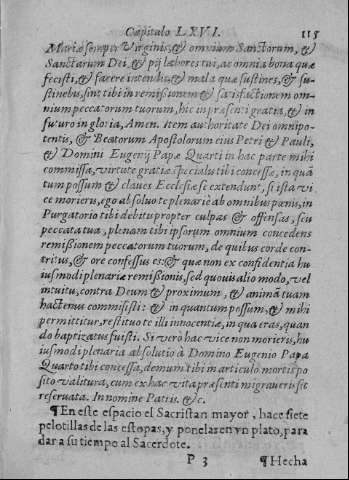 Capitulo LXVI. 115
Mariæ semper Virginis, & omnium Sanctorum, &
Sanctarum Dei, & pij labores tui, ac omnia bona quæ
fecisti, & facere intendis, & mala quæ sustines, & su-
stinebis, sint tibi in remissionem & satisfactionem om-
nium peccatorum tuorum, hic in præsenti gratia, & in
futuro in gloria, Amen. Item authoritate Dei omnipo-
tentis, & Beatorum Apostolorum eius Petri & Pauli,
& Domini Eugenij Papæ Quarti in hac parte mihi
commissa, virtute gratiæ specialis tibi concessæ, in quā
tum possum & claues Ecclesiæ se extendunt, si ista vi
ce morieris, ego absoluo te plenariè ab omnibus pœnis, in
Purgatorio tibi debitis propter culpas & offensas, seu
peccata tua, plenam tibi ipsorum omnium concedens
remissionem peccatorum tuorum, de quibus corde con-
tritus, & ore confessus es: & quæ non ex confidentia hu
iusmodi plenariæ remissionis, sed quouis alio modo, vel
intuitu, contra Deum & proximum, & animā tuam
hactenus commisisti: & in quantum possum, & mihi
permittitur, restituo te illi innocentiæ, in qua eras, quan
do baptizatus fuisti. Si verò hac vice non morieris, hu
iusmodi plenaria absolutio à Domino Eugenio Papa
Quarto tibi concessa, demum tibi in articulo mortis po
sito valitura, cum ex hac vita præsenti migraueris sit
reseruata. In nomine Patris. &c.
¶ En este espacio el Sacristan mayor, hace siete
pelotillas de las estopas, y ponelas en vn plato, para
dar a su tiempo al Sacerdote.
P 3 ¶ Hecha